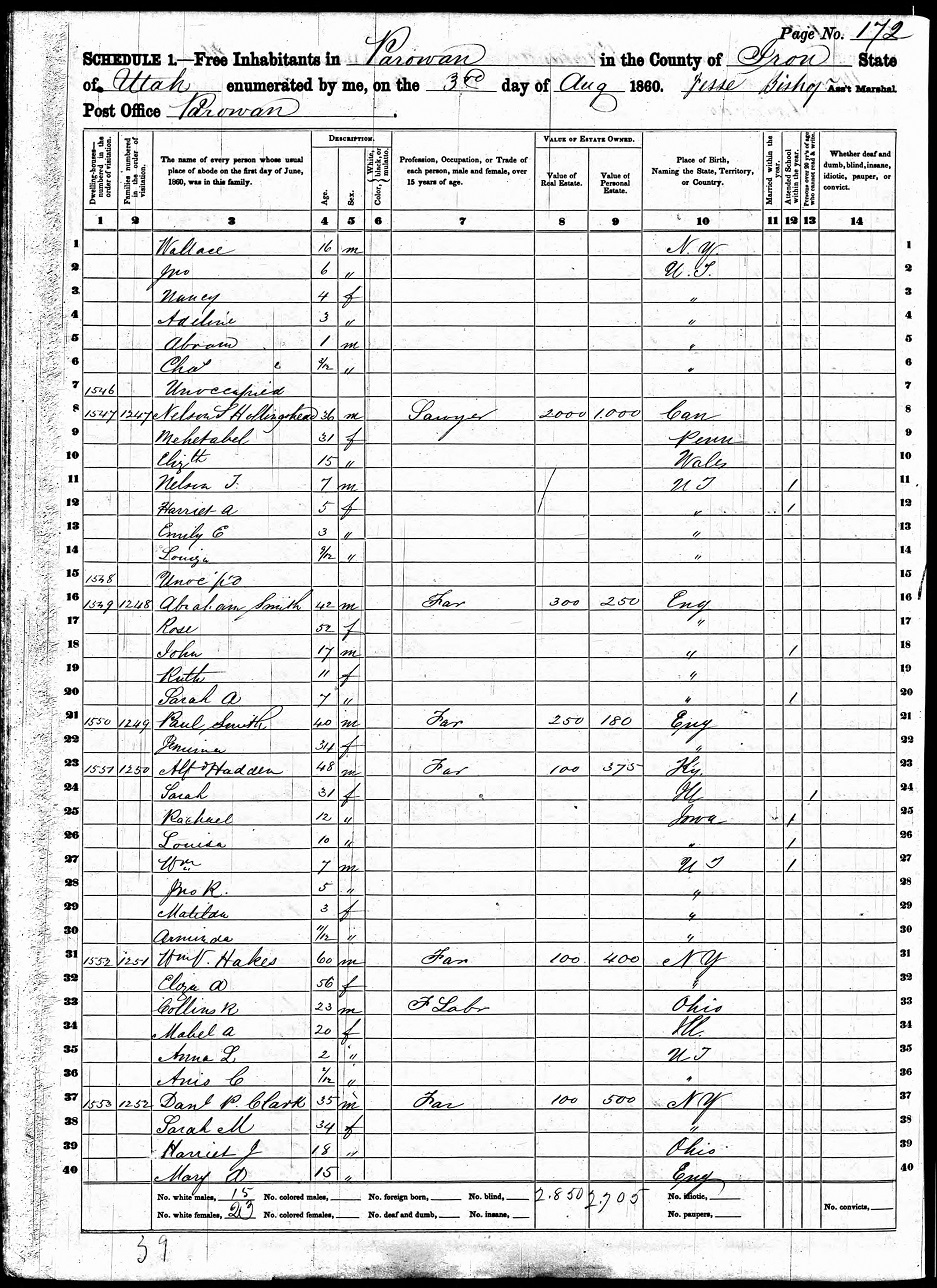 Page No. 172
SCHEDULE 1.—Free Inhabitants in Parowan in the County of Iron State
of Utah enumerated by me, on the 3rd day of Aug 1860. Jesse Bishop Ass't Marshal.
Post Office Parowan.
Dwelling-houses—numbered in the order of visitation.
Families numbered in the order of visitation.
The name of every person whose usual place of abode on the first day of June, 1860, was in this family.
DESCRIPTION.
Age.
Sex.
Color, White, black, or mulatto.
Profession, Occupation, or Trade of each person, male and female, over 15 years of age.
VALUE OF ESTATE OWNED.
Value of Real Estate.
Value of Personal Estate.
Place of Birth, Naming the State, Territory, or Country.
Married within the year.
Attended School within the year.
Persons over 20 y'rs of age who cannot read & write.
Whether deaf and dumb, blind, insane, idiotic, pauper, or convict.
1 2 3 4 5 6 7 8 9 10 11 12 13 14
1 Wallace 16 m N.Y. 1
2 Jno 6 " U.T. 2
3 Nancy 4 f " 3
4 Adeline 3 " " 4
5 Abram 1 m " 5
6 Chas /12 " " 6
7 1546 Unoccupied 7
8 1547 1247 Nelson S Hollingshead 36 m Sawyer 2000 1.000 Can 8
9 Mehetabel 31 f Penn 9
10 Elizth 15 " Wales 10
11 Nelson T. 7 m U T / 11
12 Harriet A 5 f " / 12
13 Emily E 3 " " 13
14 Louiza 9/12 " " 14
15 1538 Unoc'p'd 15
16 1539 1248 Abraham Smith 42 m Far 300 250 Eng 16
17 Rose 52 f " 17
18 John 17 m " / 18
19 Ruth 11 f " 19
20 Sarah A 7 " " / 20
21 1550 1249 Paul Smith 40 m Far 250 180 Eng 21
22 Jemima 34 f " 22
23 1551 1250 Alfd Hadden 48 m Far 100 375 Ky. 23
24 Sarah 31 f Ill / 24
25 Rachael 12 " Iowa / 25
26 Louisa 10 " " / 26
27 Wm 7 m U T / 27
28 Jno R. 5 " " 28
29 Matilda 3 f " 29
30 Arminda 11/12 " " 30
31 1552 1251 Wm V. Hakes 60 m Far 100 400 N Y 31
32 Eliza A 56 f " 32
33 Collins R 23 m F Labr Ohio 33
34 Mabel A 20 f Ill 34
35 Anna L. 2 " U T 35
36 Anis C /12 " " 36
37 1553 1252 Danl P. Clark 35 m Far 100 500 N Y 37
38 Sarah M 34 f " 38
39 Harriet J 18 " Ohio 39
40 Mary A 15 " Eng 40
No. white males, 15 No. colored males, No. foreign born, No. blind, 2.850 2,705 No. idiotic,
No. white females, 23 No. colored females, No. deaf and dumb, No. insane, No. paupers, No. convicts,
39